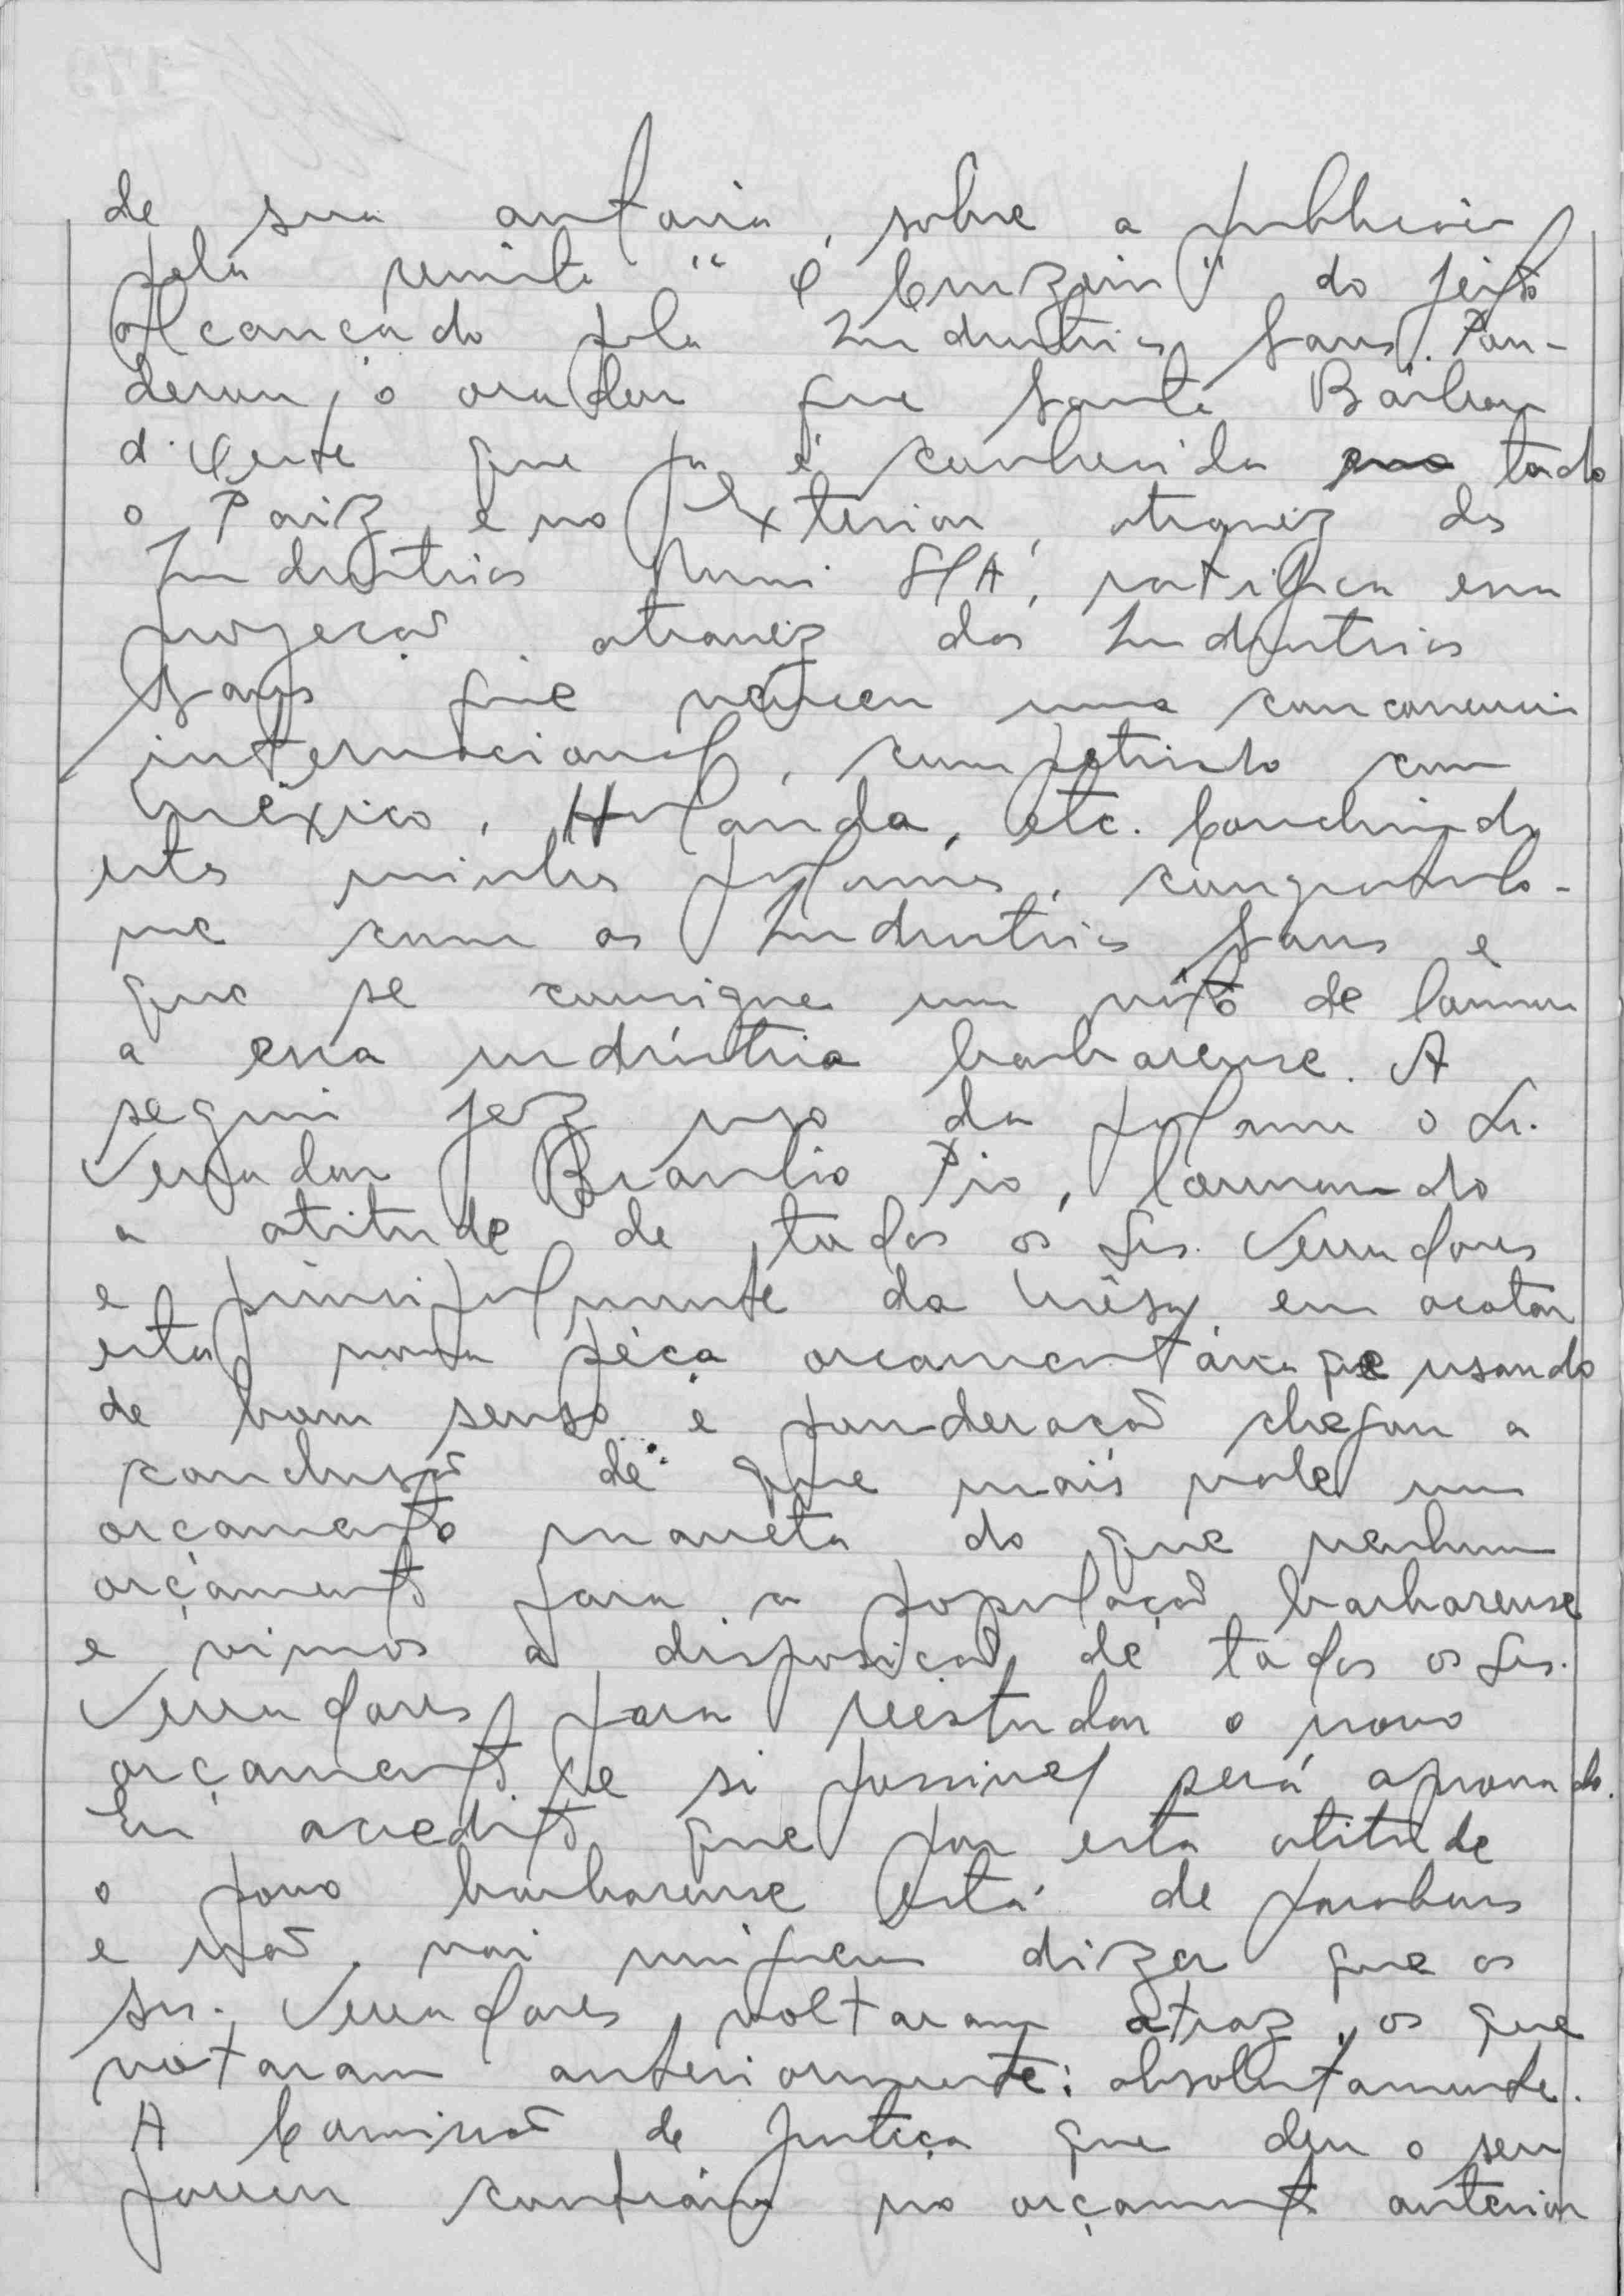 de sua autoria, sobre a publicação
pela revista "O Cruzeiro" do feito
alcançado pela Industrias Sans. Pon-
derou, o orador que Santa Bárbara
d'Oeste que ja é conhecida todo
o Paiz e no Exterior, atravez da
Industrias Romi S/A, ratifica essa
projeção atravez das Industrias
Sans que venceu uma concorrencia
internacional, competindo com
México, Holanda, etc. Concluindo
estas minhas palavras, congratulo-
me com as Industrias Sans e
que se consigne um voto de louvor
a essa indústria barbarense. A
seguir fez uso da palavra o Sr.
Vereador Braulio Pio, louvando
a atitude de todos os Srs. Vereadores
e principalmente da Mêsa em acatar
esta nova péça orçamentária que usando
de bom senso e ponderação chegou a
conclusão de que mais vale um
orçamento maneta do que nenhum
orçamento para a população barbarense
e vimos a disposição de todos os Srs.
Vereadores para reestudar o novo
orçamento e si possivel será aprovado.
Eu acredito que por esta atitude
o povo barbarense está de parabens
e não vai ninguem dizer que os
srs. Vereadores voltaram atraz, os que
votaram anteriormente: absolutamente.
A Comissão de Justiça que deu o seu
parecer contrário no orçamento anterior